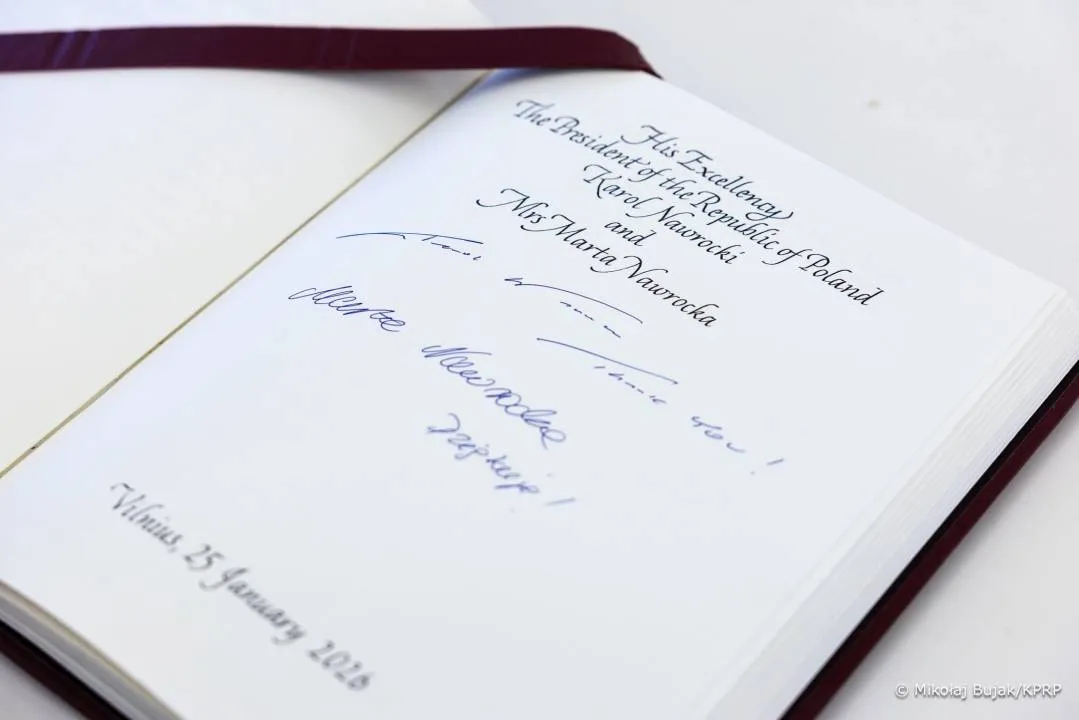 His Excellency
The President of the Republic of Poland
Karol Nawrocki
and
Mrs Marta Nawrocka
Thank you!
Marta Nawrocka
Dziękuję!
Vilnius, 25 January 2026
© Mikołaj Bujak/KPRP